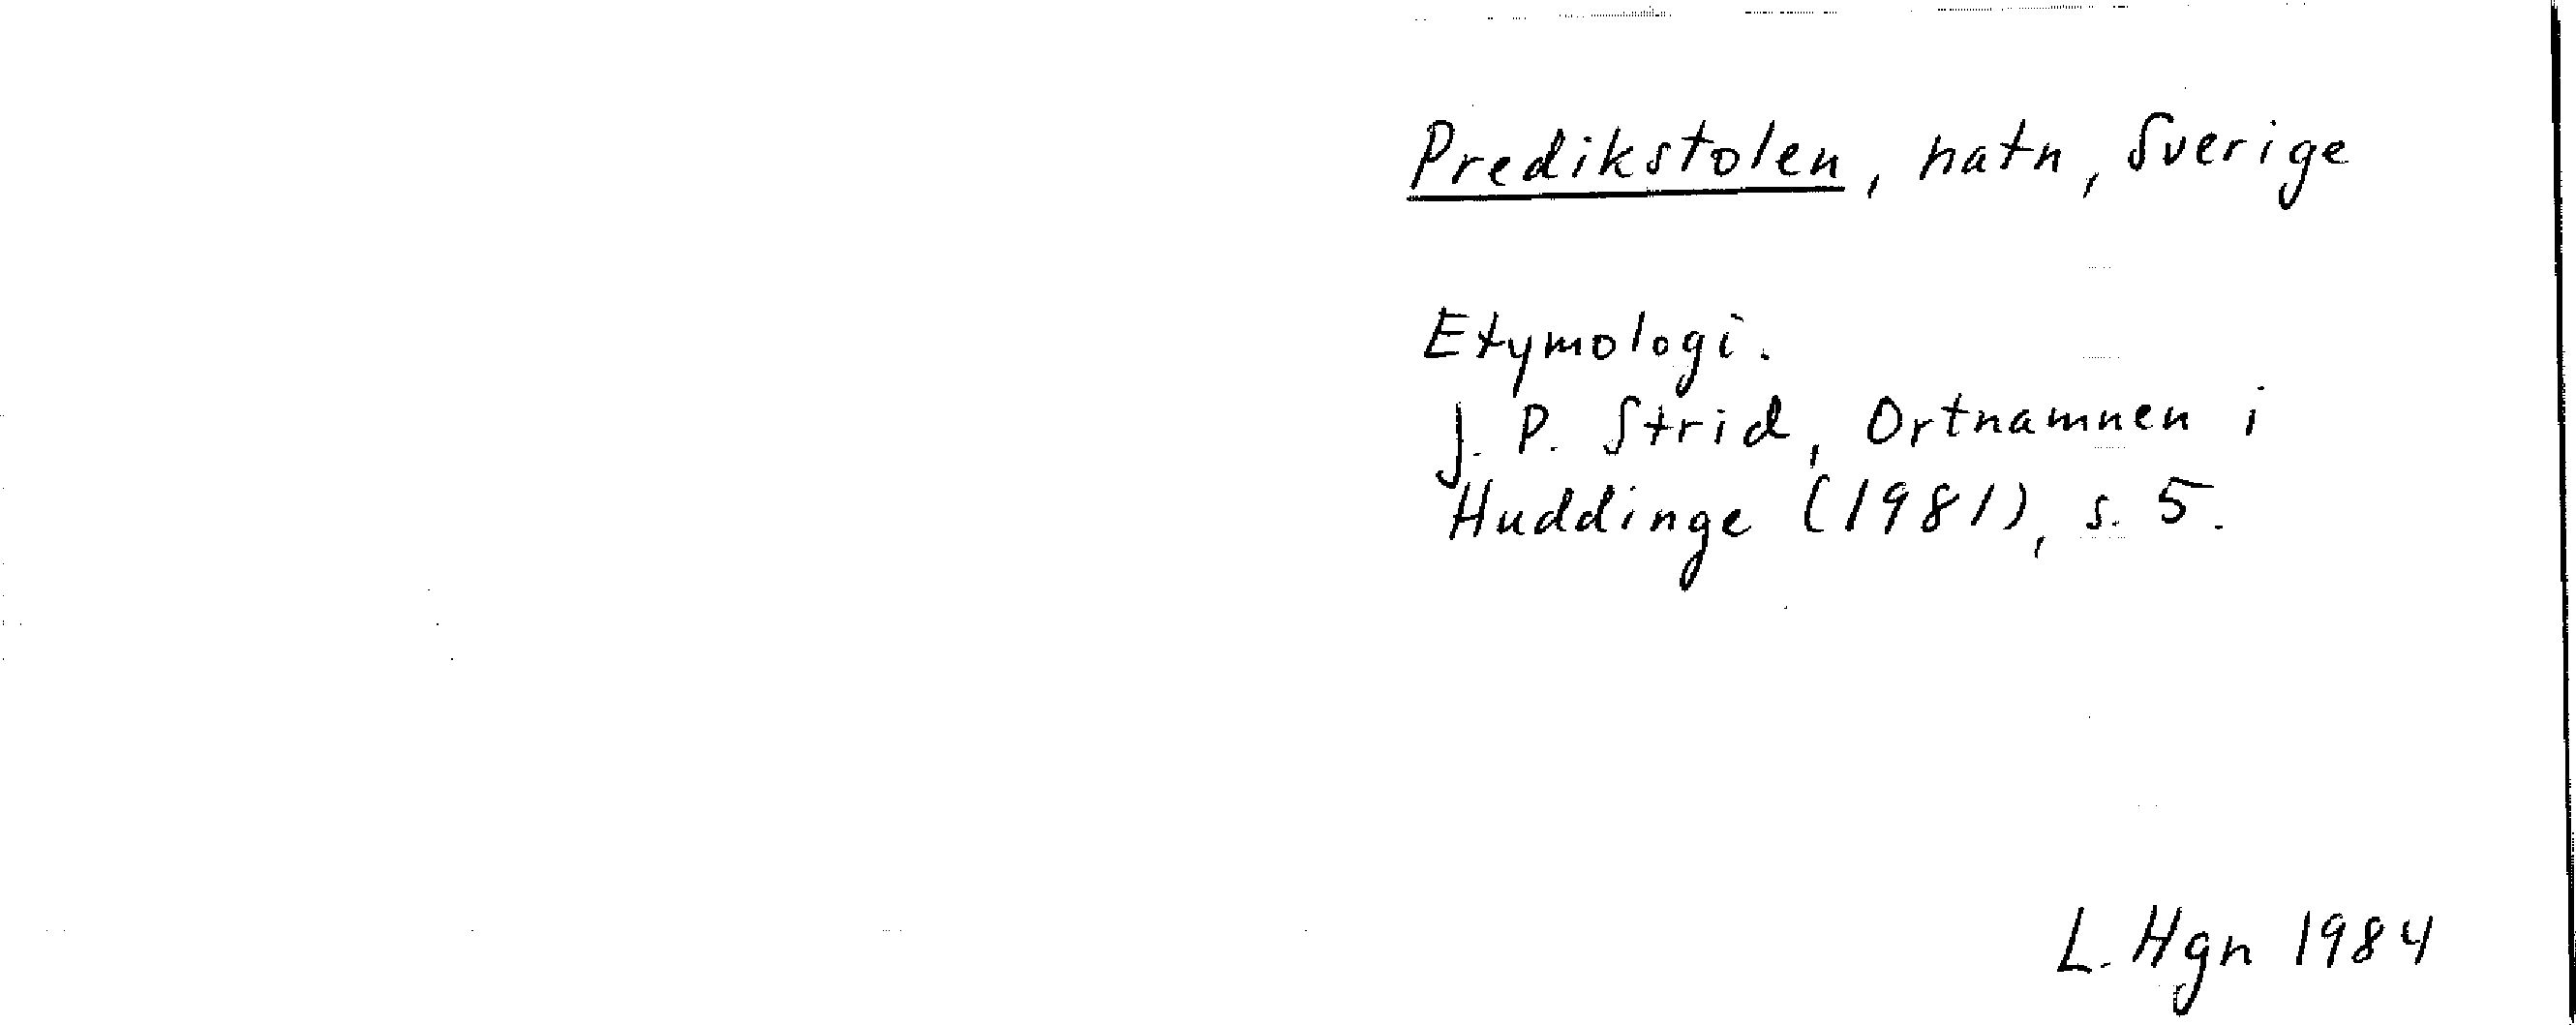 Predikstolen, natn, Sverige
Etymologi.
J. P. Strid, Ortnamnen i
Huddinge (1981), s. 5.
L. Hgn 1984